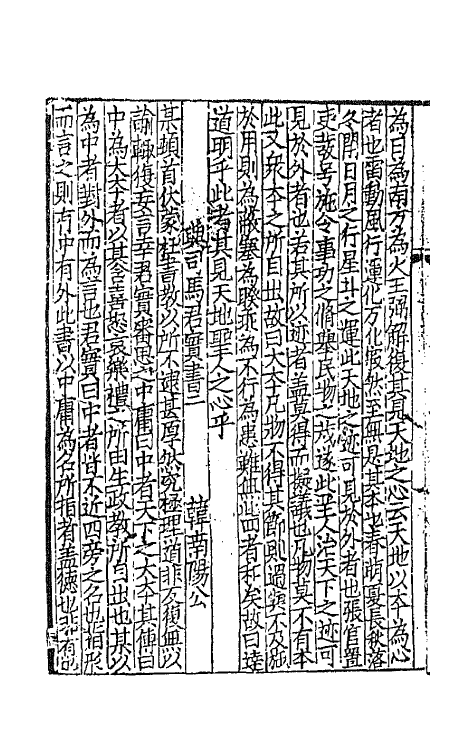 為日為南方為火王弼解復其見天地之心云天地以本為心
者也雷動風行運化万化寂然至無是其本也春萌夏長秋落
冬閉日月之行星斗之運此天地之迹可見於外者也張官置
吏發号施令事功之脩舉民物之茂遂此聖人治天下之迹可
見於外者也若其所以迹者蓋莫得而擬議也凡物莫不有本
此又衆本之所自出故曰大本凡物不得其節則過與不及施
於用則為蔽塞為睽乖為不行為患難無此四者和矣故曰達
道明乎此者其見天地聖人之心乎
與司馬君實書二 韓南陽公
某頓首伏蒙杜書教以所不逮甚厚然究極理道非反復無以
諭輒復妄言幸君實審思之中庸曰中者天下之大本其傳曰
中為大本者以其含喜怒哀樂禮之所由生政教所自出也其以
為中者對外而為言也君實曰中者皆不近四旁之名也指形
而言之則有中有外此書以中庸為名所指者蓋德也非有